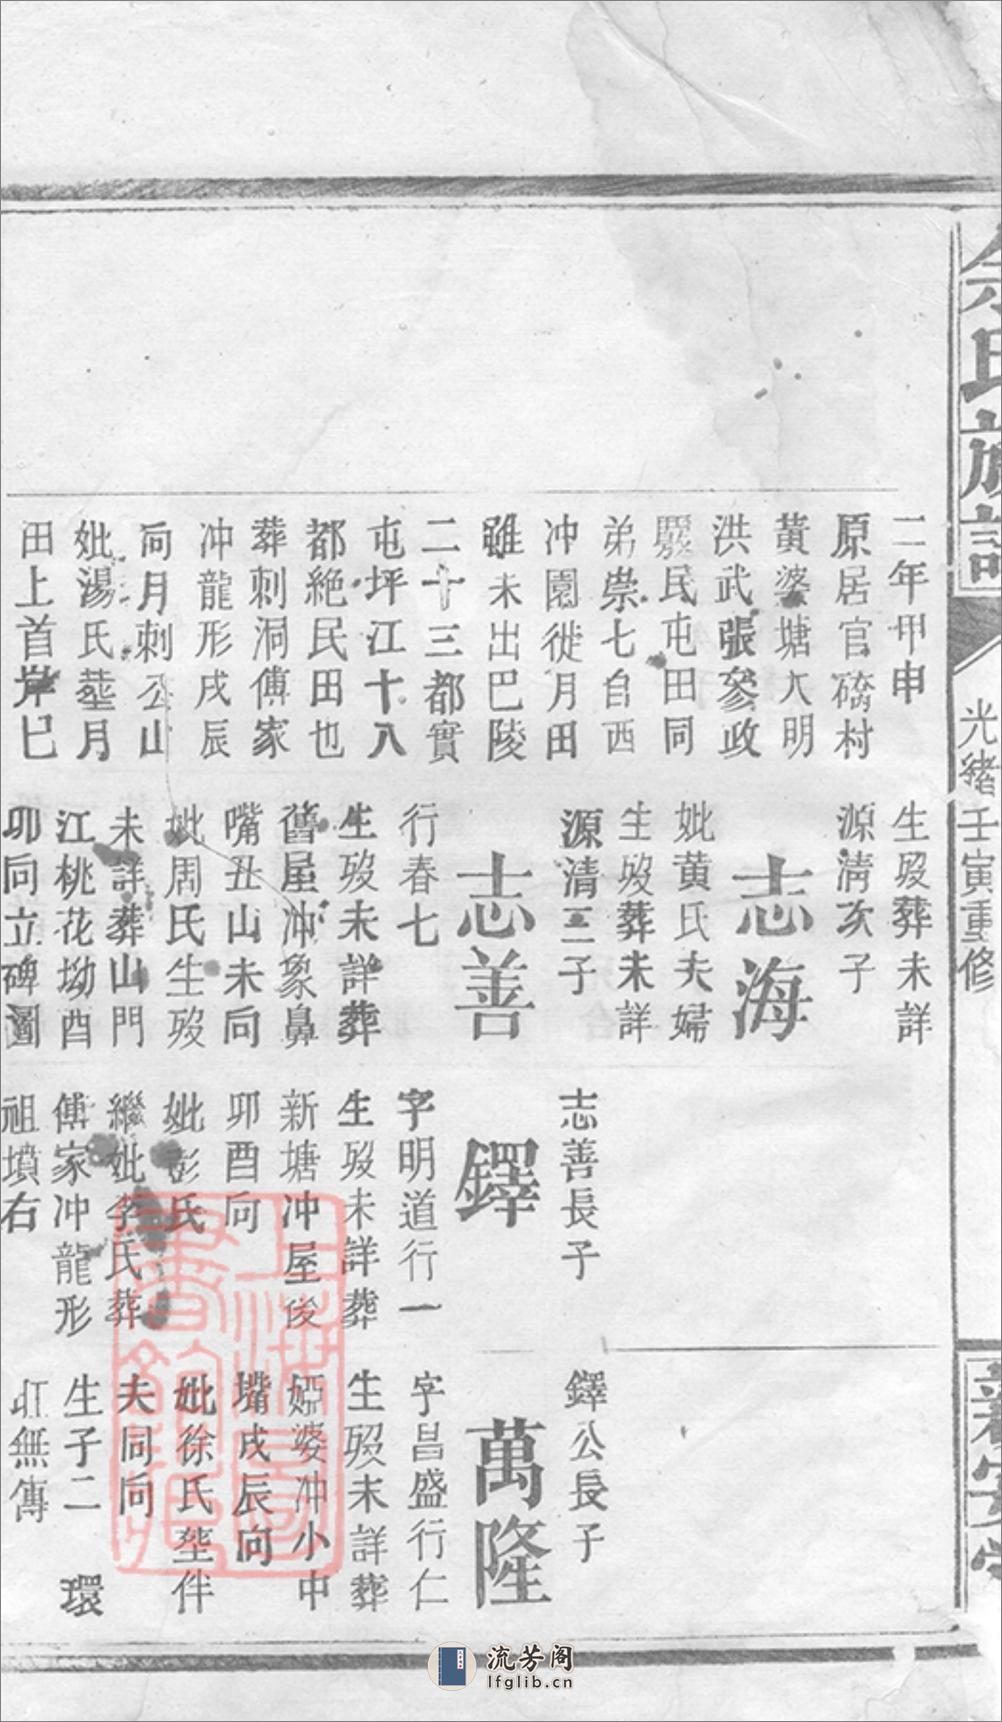 余氏族譜
光緒壬寅重修
新安堂
二年甲申
原居官橋村
黃婆塘大明
洪武張參政
民屯田同
弟崇七自西
冲園徙月田
雖未出巴陵
二十三都實
屯坪江十八
都絶民田也
葬刺洞傅家
冲龍形戌辰
向月刺公山
妣湯氏塟月
田上首岸巳
生歿葬未詳
源清次子
志海
妣黃氏夫婦
生歿葬未詳
源清三子
志善
行春七
生歿未詳葬
舊屋冲象鼻
嘴丑山未向
妣周氏生歿
未詳葬山門
江桃花坳酉
卯向立碑圖
志善長子
鐸
字明道行一
生歿未詳葬
新塘冲屋後
卯酉向
妣彭氏
繼妣李氏葬
傅家冲龍形
祖墳右
鐸公長子
萬隆
字昌盛行仁
生歿未詳葬
婭婆冲小中
嘴戌辰向
妣徐氏塟伴
夫同向
生子二 環
無傳
上海圖書館藏
流芳阁
lfglib.cn